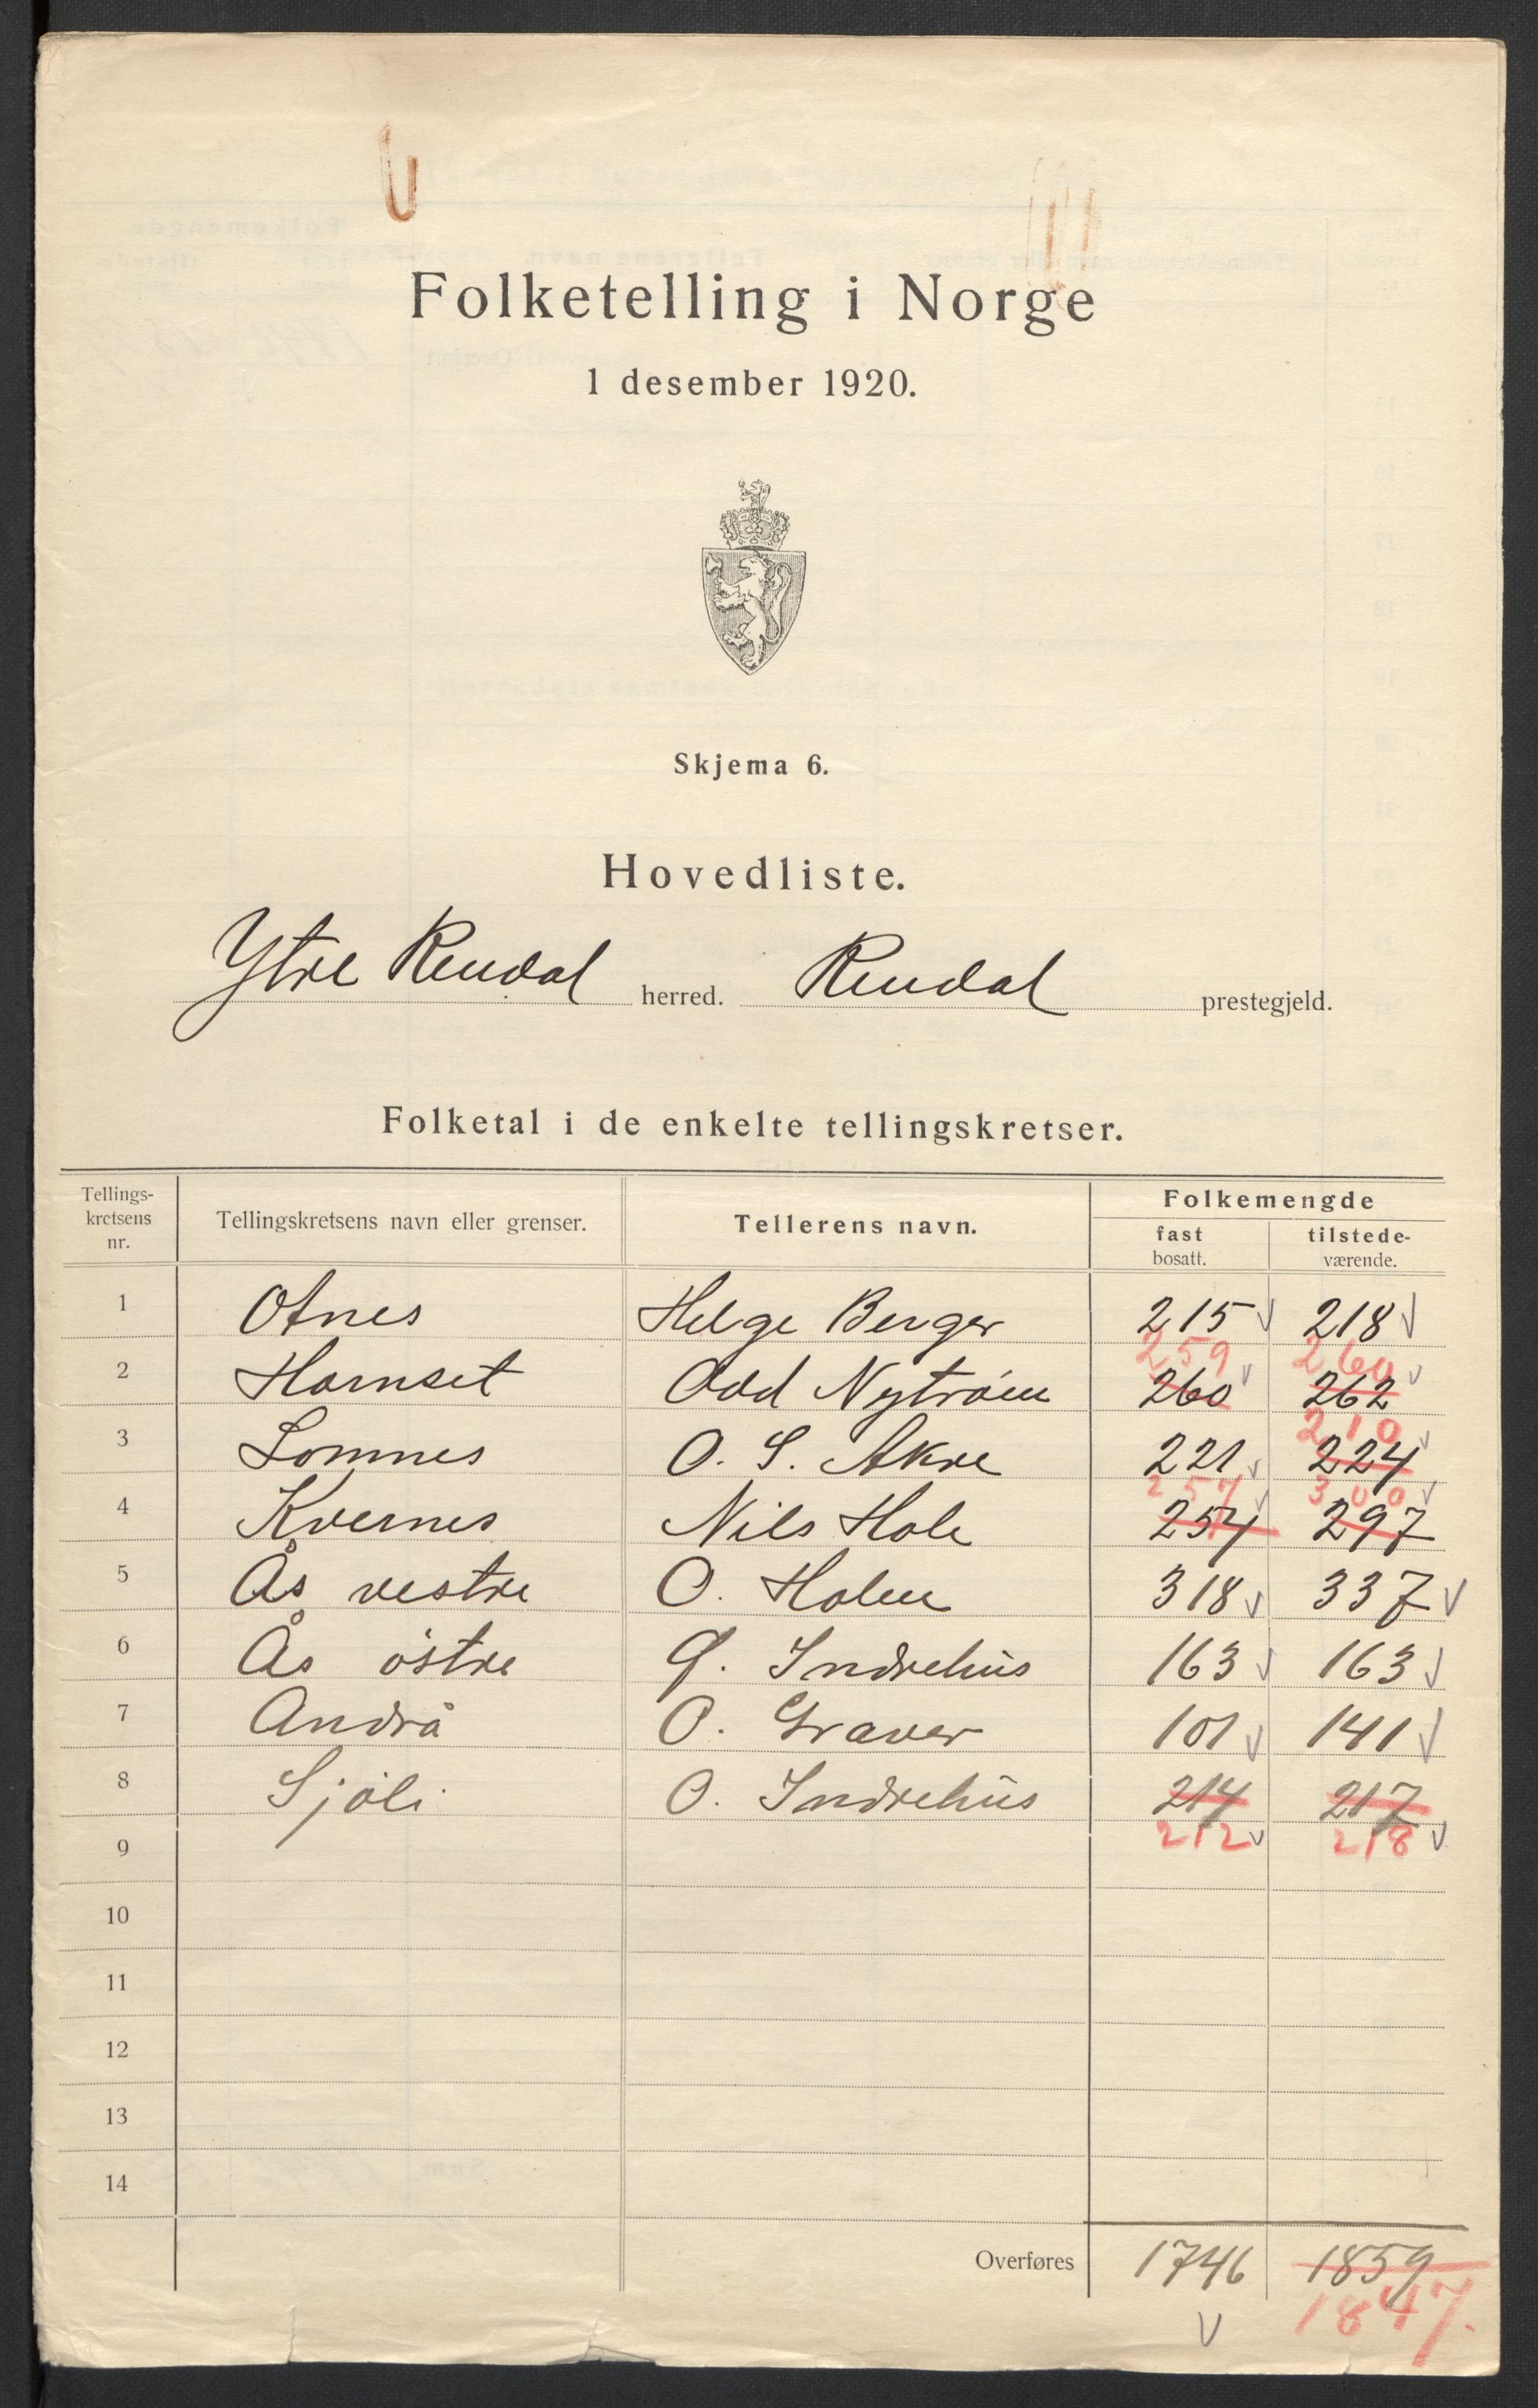 Folketelling i Norge
1 desember 1920.
Skjema 6.
Hovedliste.
Ytre Rendal herred. Rendal prestegjeld.
Folketal i de enkelte tellingskretser.
Tellings-
kretsens
nr.
Tellingskretsens navn eller grenser.
Tellerens navn.
Folkemengde
fast
bosatt.
tilstede-
værende.
1 Otnes Helge Berger 215 218
259 260
2 Harnset Odd Nytrøen 260 262
210
3 Lomnes O. S. Akre 221 224
257 300
4 Kvernes Nils Hole 254 297
5 Ås vestre O. Holen 318 337
6 Ås östre Indrehus 163 163
7 Andrå O. Graver 101 141
8 Sjöli O. Indrehus 214 217
212 218
9
10
11
12
13
14
Overføres 1746 1859
1847.